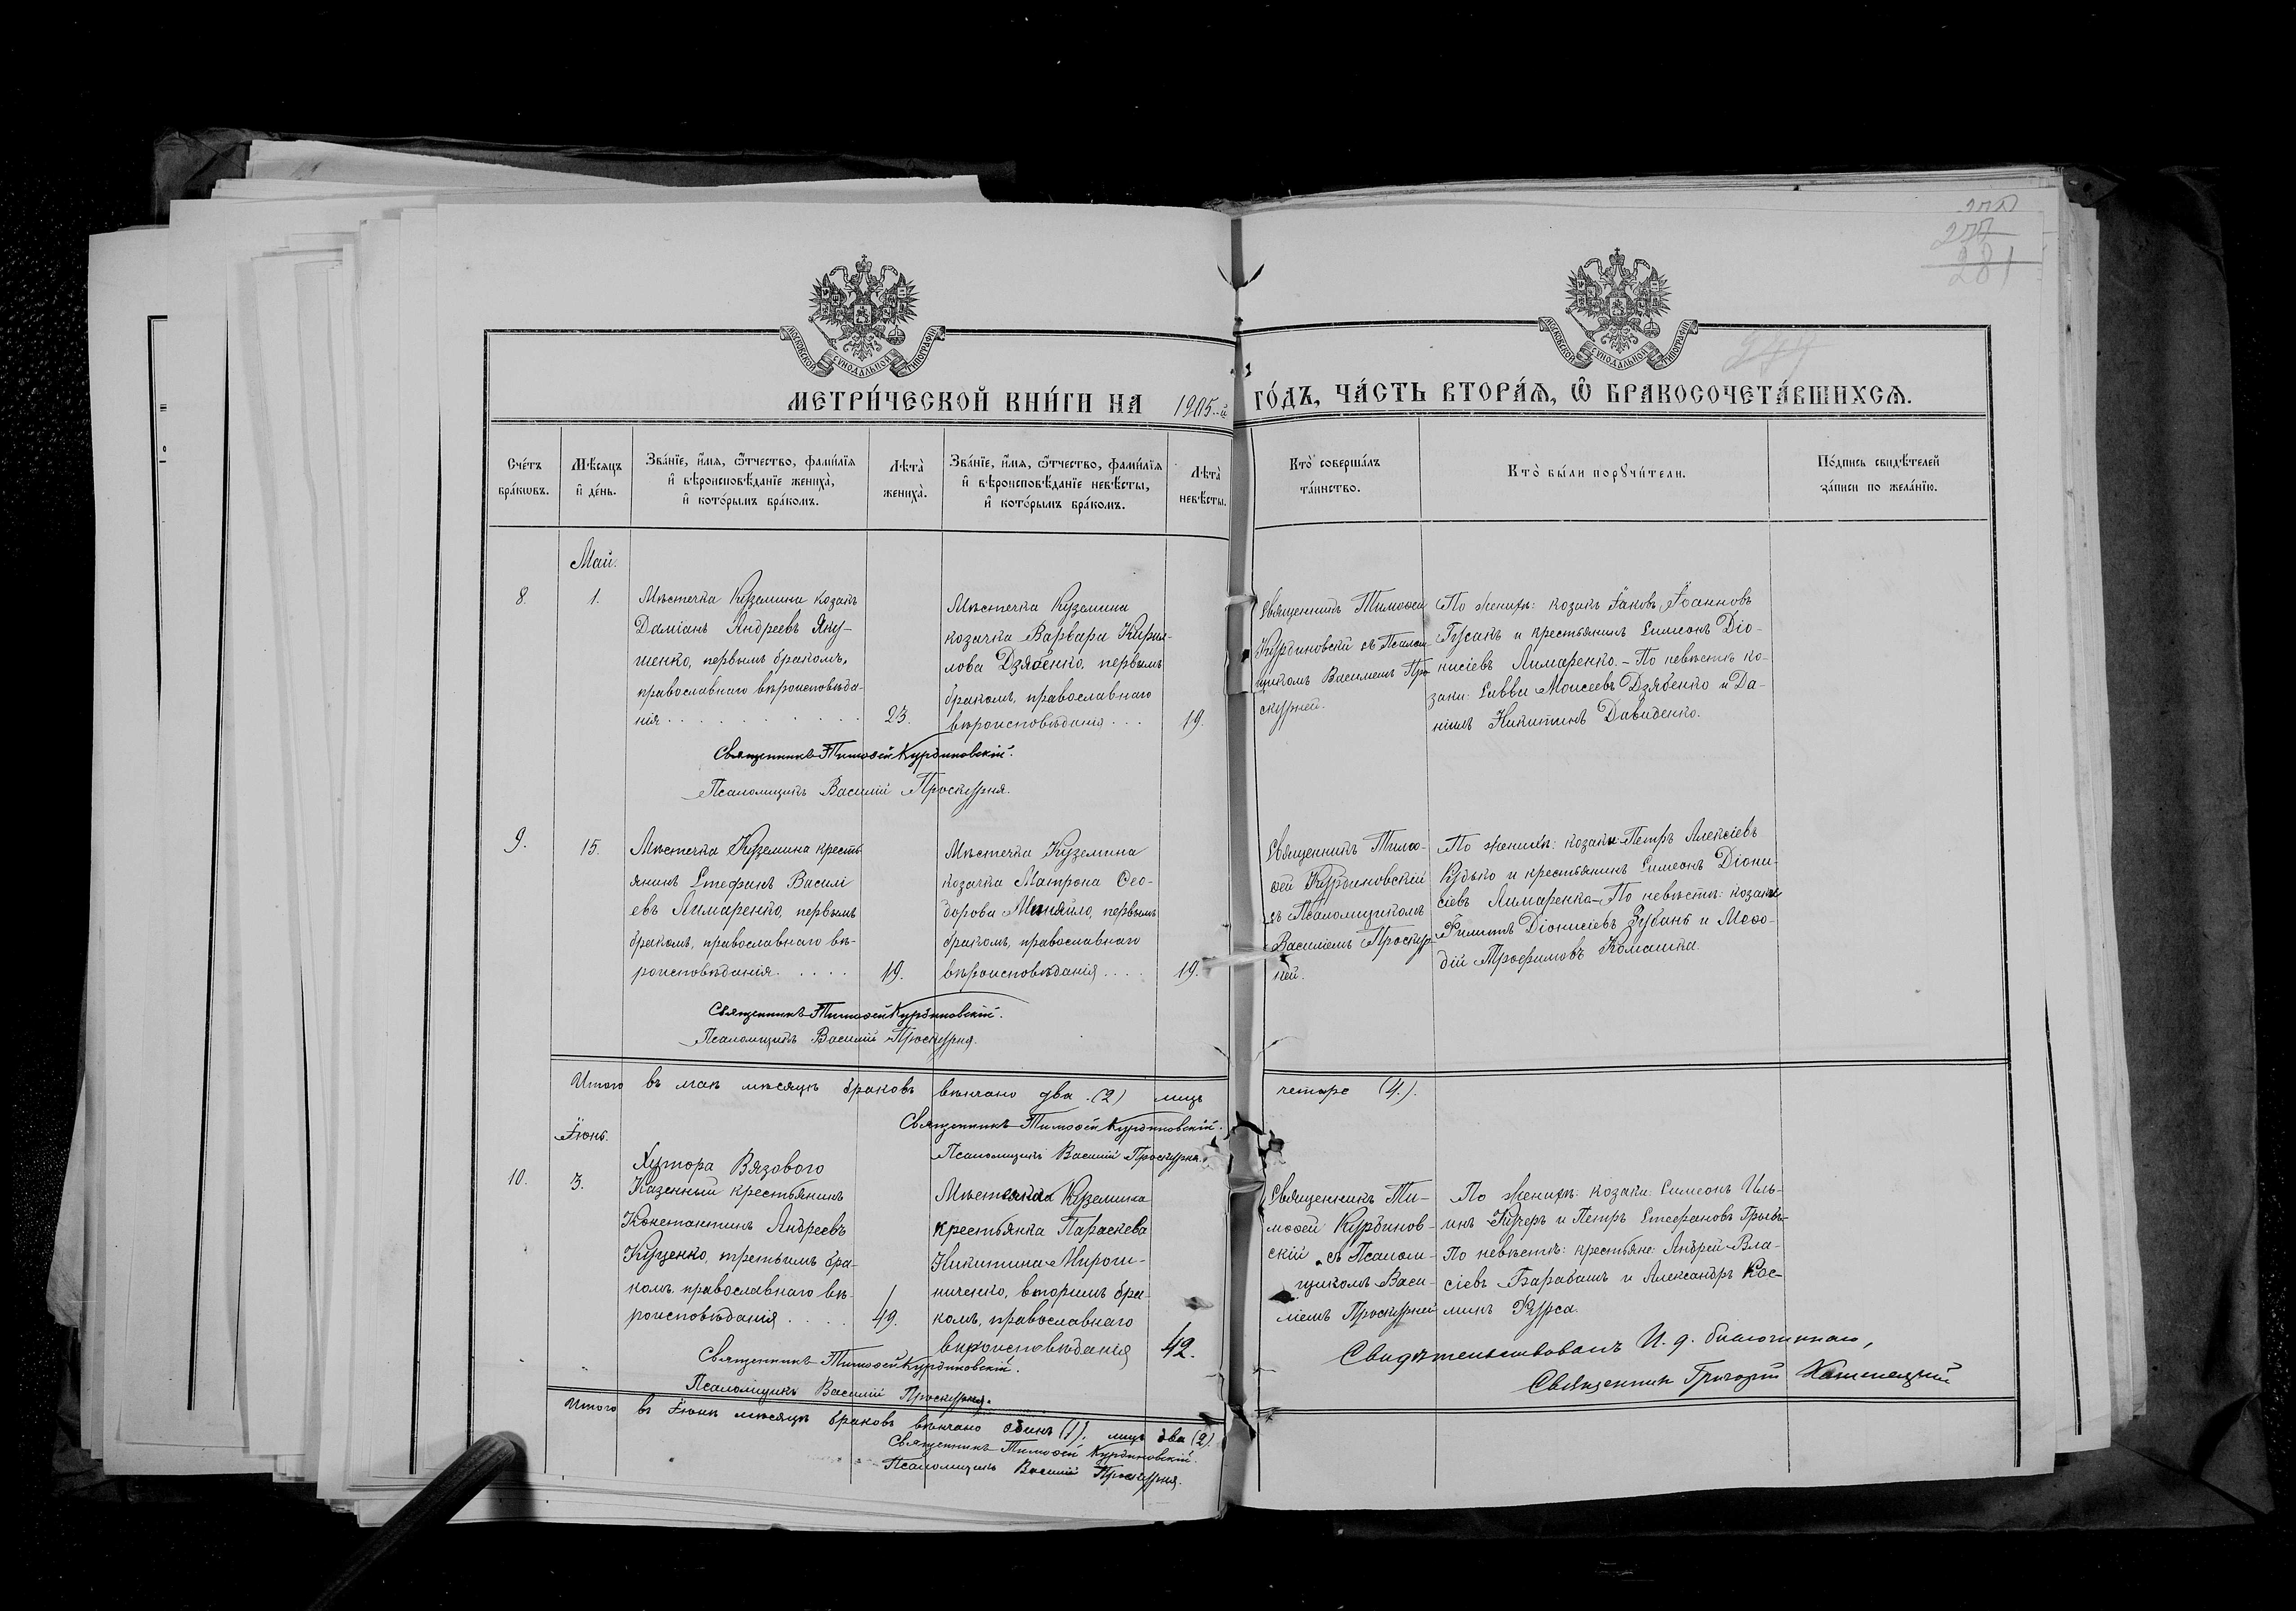 281
МОСКОВСКОЙ СУНОДАЛЬНОЙ ТИПОГРАФІИ
МОСКОВСКОЙ СУНОДАЛЬНОЙ ТИПОГРАФІИ
МЕТРИ́ЧЕСКОЙ КНИ́ГИ НА 1905-й ГО́ДЪ, ЧА́СТЬ ВТОРА́Ѧ, Ѽ БРАКОСОЧЕТА́ВШИХСѦ.
Сче́тъ бра́кѡвъ.
Мѣ́сѧцъ и҆ де́нь.
Зва́нїе, и҆́мѧ, ѻ҆́тчество, фами́лїѧ и҆ вѣроисповѣ́данїе жениха̀, и҆ кото́рымъ бра́комъ.
Лѣта̀ жениха̀.
Зва́нїе, и҆́мѧ, ѻ҆́тчество, фами́лїѧ и҆ вѣроисповѣ́данїе невѣ́сты, и҆ кото́рымъ бра́комъ.
Лѣта̀ невѣ́сты.
Кто̀ соверша́лъ та́инство.
Кто̀ бы́ли порꙋчи́тели.
По́дпись свидѣ́телей за́писи по жела́нїю.
Май.
8.
1.
Мѣстечка Куземина козакъ
Даміанъ Андреевъ Яку-
шенко, первымъ бракомъ,
православнаго вѣроисповѣда-
нія
23.
Мѣстечка Куземина
козачка Варвара Кирил-
лова Дзябенко, первымъ
бракомъ, православнаго
вѣроисповѣданія . . .
19.
Священникъ Тимоѳей
Курдиновскій съ Псалом-
щикомъ Василіемъ Про-
скурней.
По женихѣ: козакъ Іаковъ Іоанновъ
Гусакъ и крестьянинъ Симеонъ Діо-
нисіевъ Лимаренко. – По невѣстѣ ко-
заки: Савва Моисеевъ Дзябенко и Да-
ніилъ Никитинъ Давиденко.
Священникъ Тимоѳей Курдиновскій.
Псаломщикъ Василій Проскурня.
9.
15.
Мѣстечка Куземина кресть-
янинъ Стефанъ Василі-
евъ Лимаренко, первымъ
бракомъ, православнаго вѣ-
роисповѣданія. . . . .
19.
Мѣстечка Куземина
козачка Матрона Ѳео-
дорова Миняйло, первымъ
бракомъ, православнаго
вѣроисповѣданія . . . .
19.
Священникъ Тимо-
ѳей Курдиновскій
съ Псаломщикомъ
Василіемъ Проскур-
ней.
По женихѣ: козакъ Петръ Алексіевъ
Кудько и крестьянинъ Симеонъ Діони-
сіевъ Лимаренко – По невѣстѣ: козаки
Филиппъ Діонисіевъ Зубань и Меѳо-
дій Трофимовъ Комашка.
Священникъ Тимоѳей Курдиновскій.
Псаломщикъ Василій Проскурня.
Итого въ маѣ мѣсяцѣ браковъ вѣнчано два (2) лицъ четыре (4.).
Священникъ Тимоѳей Курдиновскій.
Псаломщикъ Василій Проскурня.
Іюнь.
10.
3.
Хутора Вязового
Казенный крестьянинъ
Константинъ Андреевъ
Куценко, третьимъ бра-
комъ, православнаго вѣ-
роисповѣданія . . . .
49.
Мѣстечка Куземина
крестьянка Параскева
Никитина Мирош-
ниченко, вторимъ бра-
комъ, православнаго
вѣроисповѣданія
42.
Священникъ Ти-
моѳей Курдинов-
скій съ Псалом-
щикомъ Васи-
ліемъ Проскурней
По женихѣ: козаки: Симеонъ Иль-
инъ Кучеръ и Петръ Стефановъ
По невѣстѣ: крестьяне: Андрей Вла-
сіевъ Барабашъ и Александръ Кос-
минъ Фурса.
Священникъ Тимоѳей Курдиновскій.
Псаломщикъ Василій Проскурня.
Свидѣтельствовалъ И. д. благочиннаго,
Священникъ Григорій
Итого въ Іюнѣ мѣсяцѣ браковъ вѣнчано одинъ (1), лицъ два (2).
Священникъ Тимоѳей Курдиновскій.
Псаломщикъ Василій Проскурня.